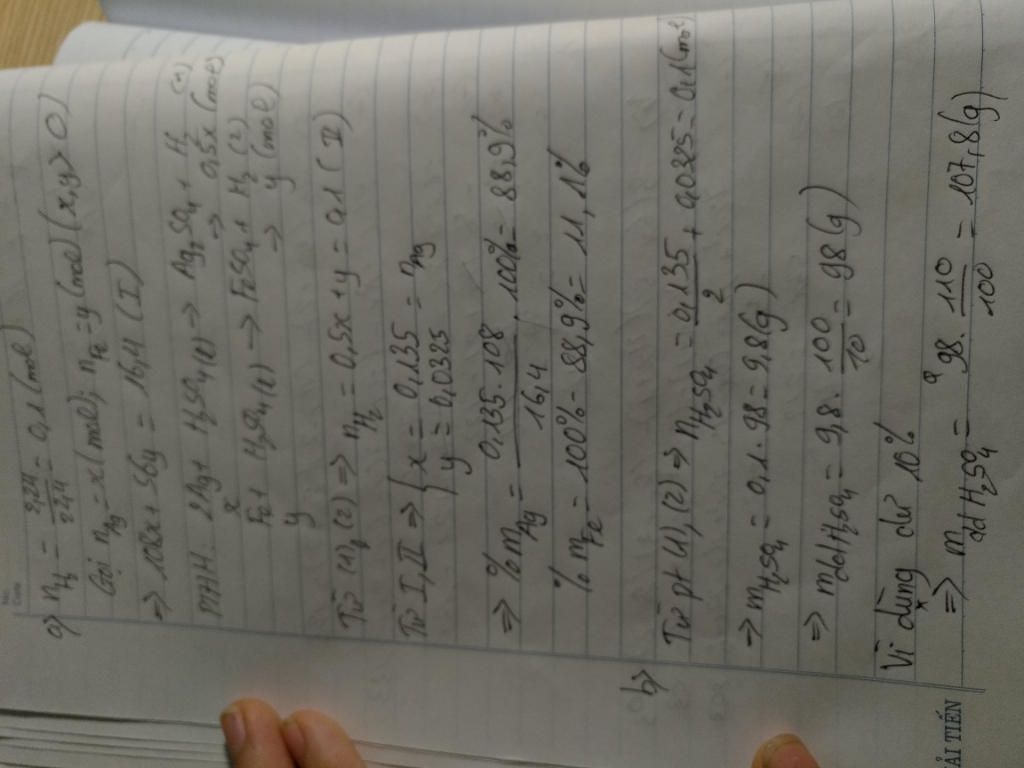 No.
Date
a) n H₂ = 2,24/22,4 = 0,1 (mol)
Gọi n Ag = x (mol); n Fe = y (mol) (x,y > 0)
=> 108x + 56y = 16,4 (I)
PTHH: 2Ag + H₂SO₄(l) -> Ag₂SO₄ + H₂ (1)
x => 0,5x (mol)
Fe + H₂SO₄(l) -> FeSO₄ + H₂ (2)
y => y (mol)
Từ (1), (2) => n H₂ = 0,5x + y = 0,1 (II)
Từ I, II => { x = 0,135 = n Ag
y = 0,0325
=> % m Ag = 0,135.108/16,4 . 100% = 88,9%
% m Fe = 100% - 88,9% = 11,1%
b) Từ pt (1), (2) => n H₂SO₄ = 0,135/2 + 0,0325 = 0,1 (mol)
-> m H₂SO₄ = 0,1.98 = 9,8 (g)
=> m dd H₂SO₄ = 9,8 . 100/10 = 98 (g)
Vì dùng dư 10%
=> m dd H₂SO₄ = 98 . 110/100 = 107,8 (g)
ẢI TIẾN